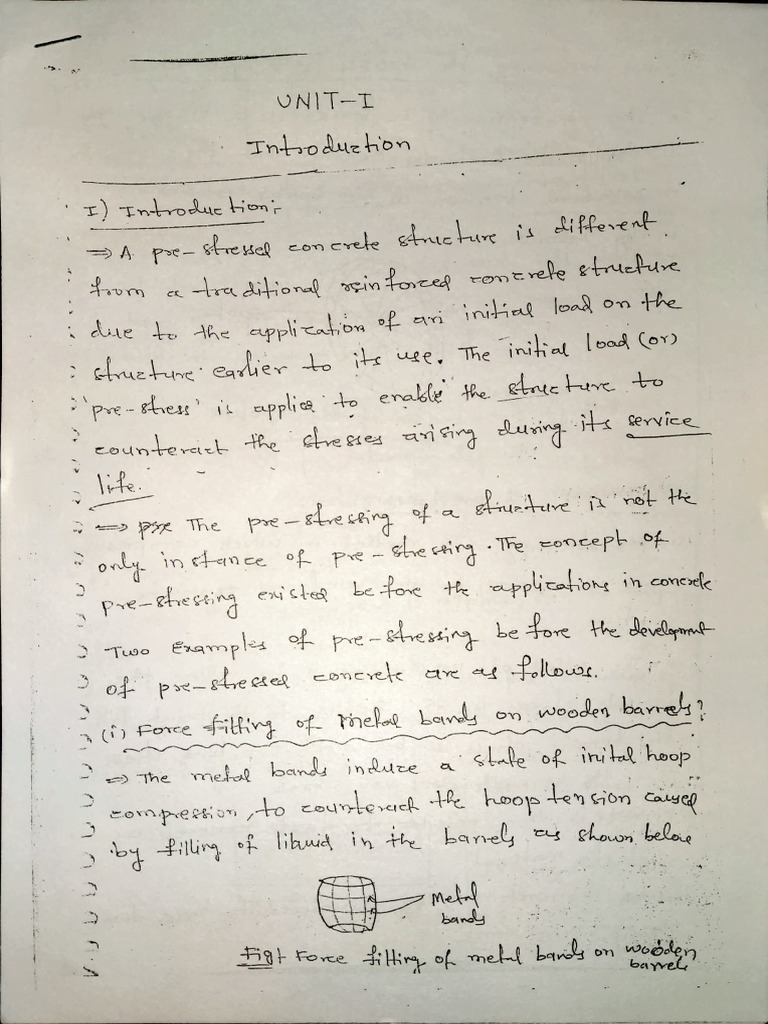 UNIT-I
Introduction
I) Introduction:-
⇒ A pre-stressed concrete structure is different
from a traditional reinforced concrete structure
due to the application of an initial load on the
structure earlier to its use. The initial load (or)
'pre-stress' is applied to enable the structure to
counteract the stresses arising during its service
life.
⇒ The pre-stressing of a structure is not the
only instance of pre-stressing. The concept of
pre-stressing existed before the applications in concrete
Two Examples of pre-stressing before the development
of pre-stressed concrete are as follows.
(i) Force fitting of metal bands on wooden barrels:
⇒ The metal bands induce a state of inital hoop
compression, to counteract the hoop tension caused
by filling of liquid in the barrels as shown below
Metal
bands
Fig: Force fitting of metal bands on wooden
barrels